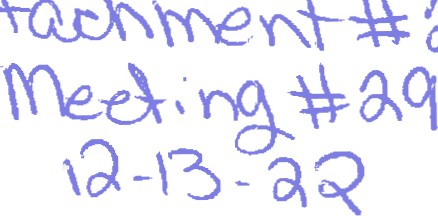 tachment #
Meeting #29
12-13-22